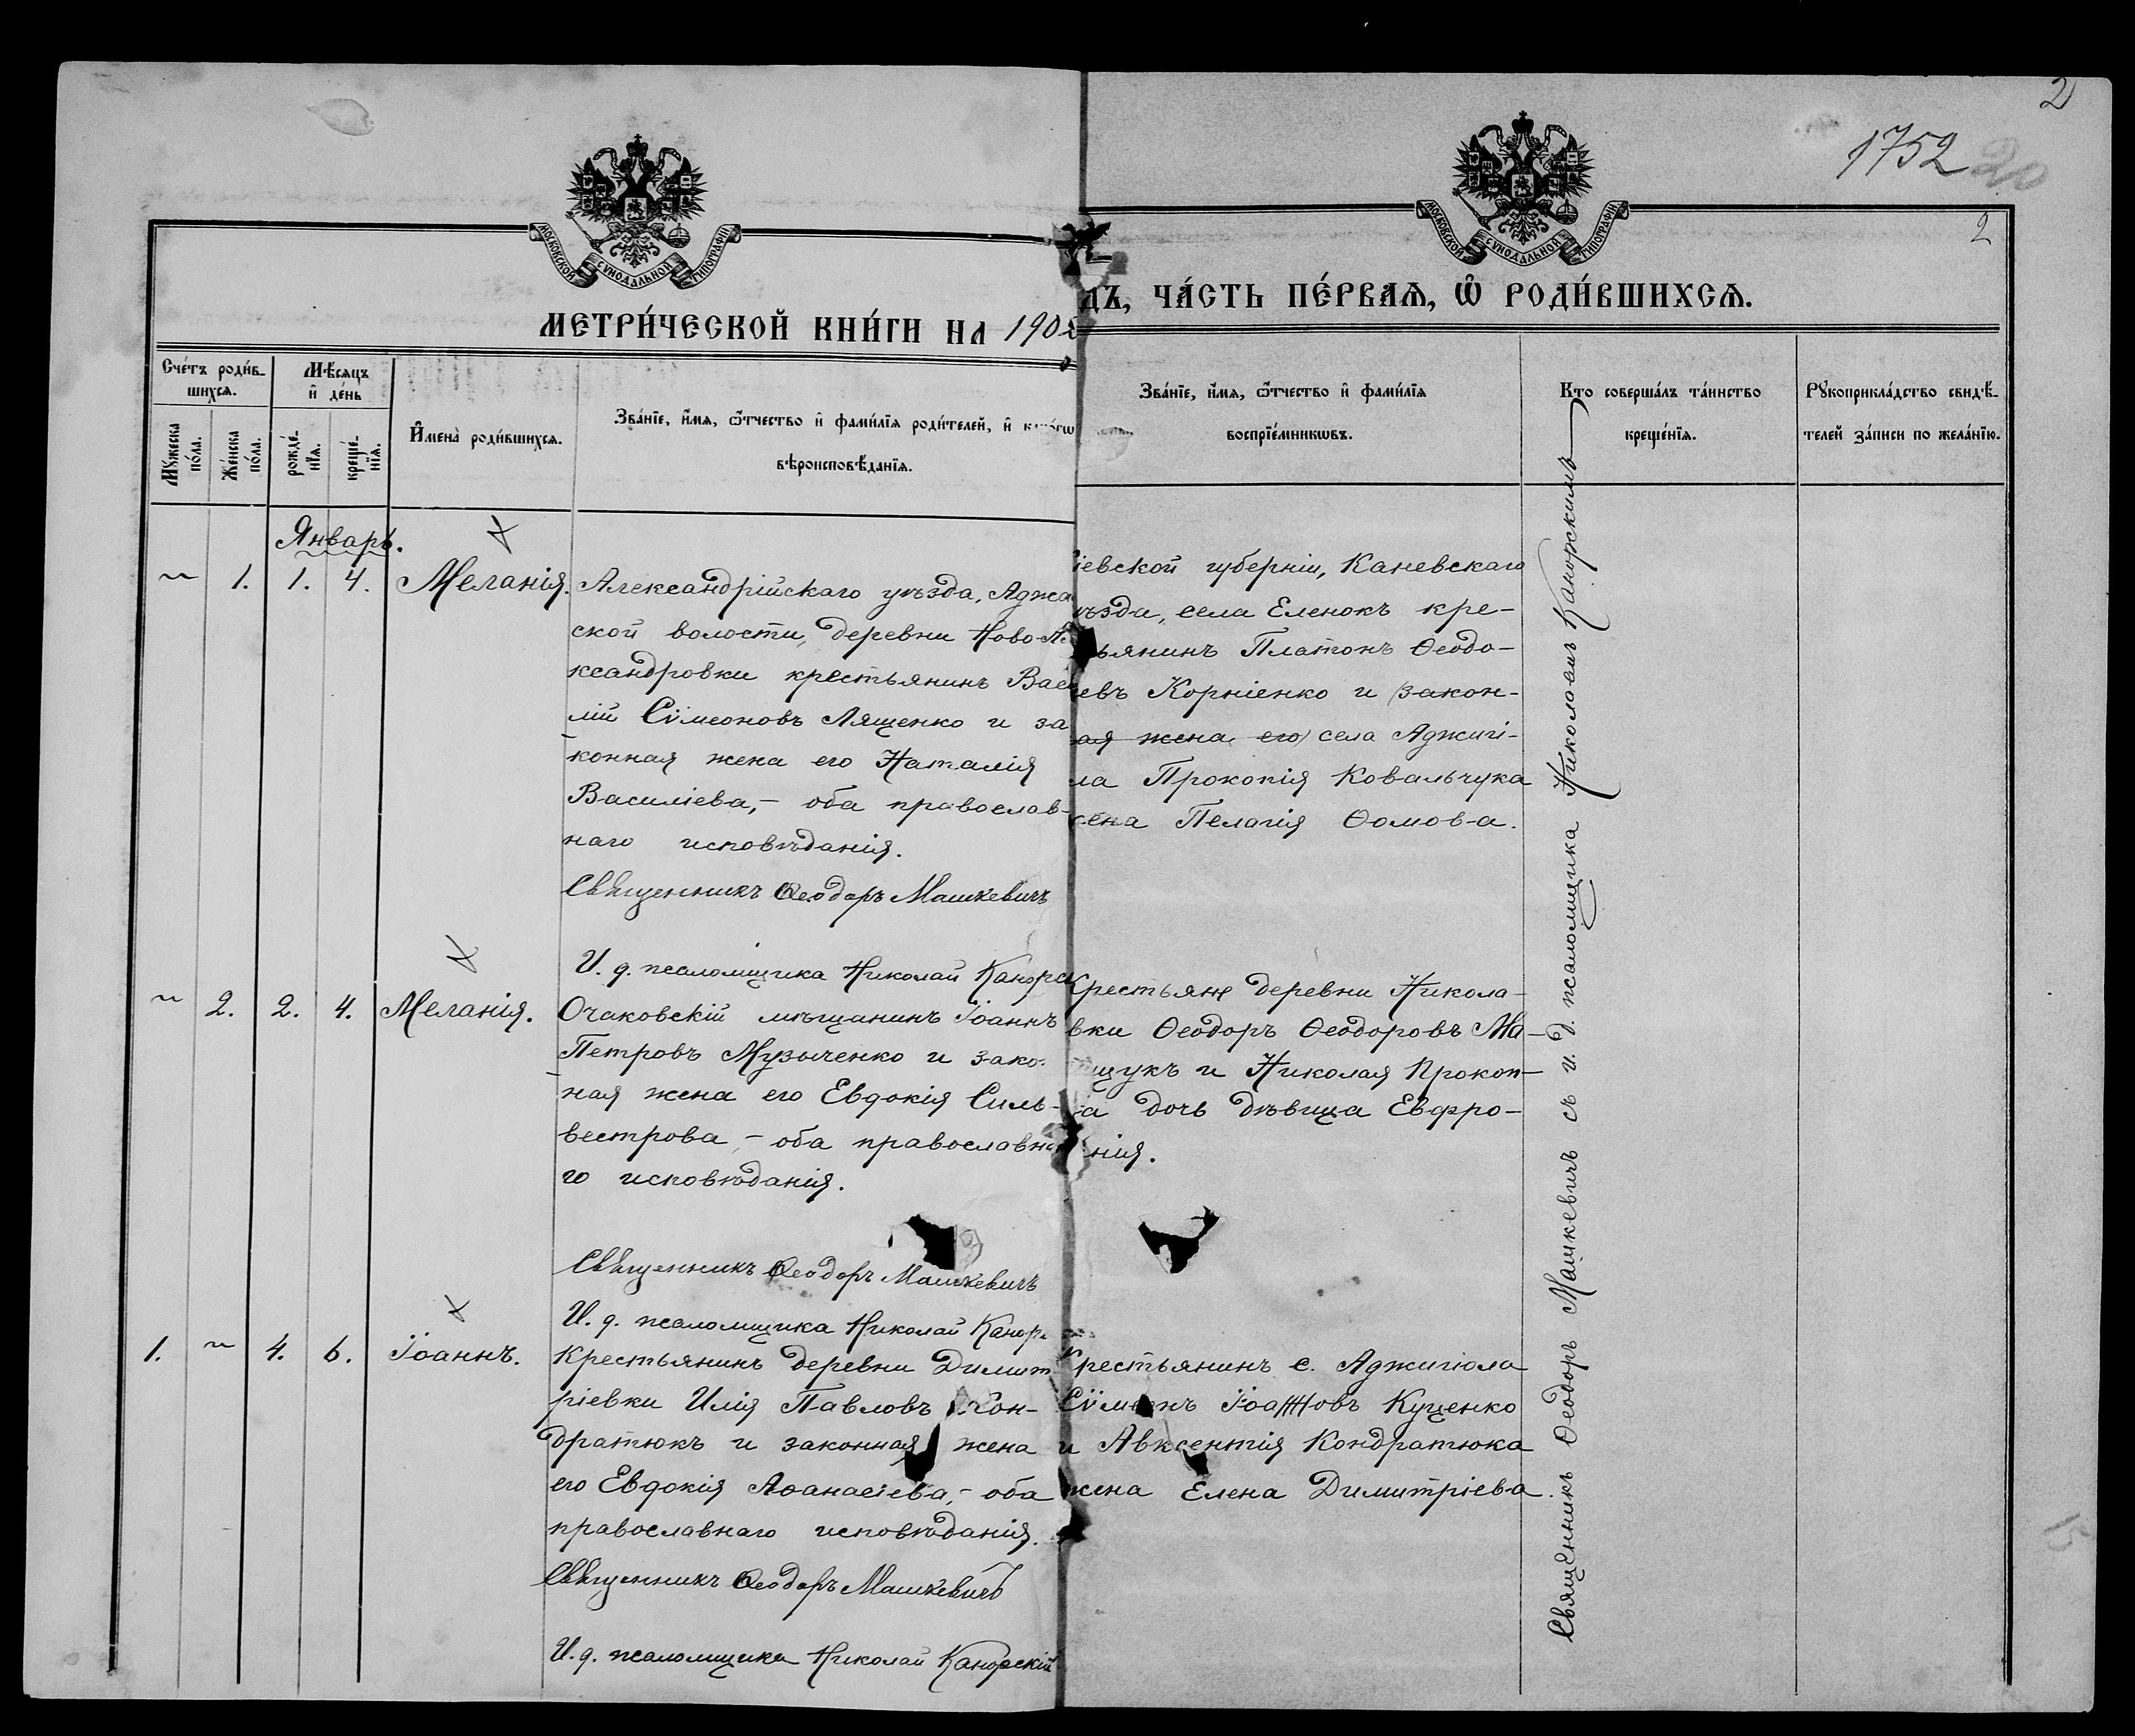 2
1752
20
2
МОСКОВСКОЙ СѴНОДАЛЬНОЙ ТИПОГРАФІИ
МОСКОВСКОЙ СѴНОДАЛЬНОЙ ТИПОГРАФІИ
МЕТРИ́ЧЕСКОЙ КНИ́ГИ НА 190
ДЪ, ЧА́СТЬ ПЕ́РВАѦ, Ѡ҆ РОДИ́ВШИХСѦ.
Сче́тъ роди́в-
шихсѧ.
Мꙋ́жеска по́ла.
Же́нска по́ла.
Мѣ́сѧцъ
и҆ де́нь
рожде́-нїѧ.
креще́-нїѧ.
И҆мена̀ роди́вшихсѧ.
Зва́нїе, и҆́мѧ, ѻ҆́тчество и҆ фами́лїѧ роди́телей, и҆
вѣроисповѣ́данїѧ.
Зва́нїе, и҆́мѧ, ѻ҆́тчество и҆ фами́лїѧ
воспрїе́мникѡвъ.
Кто совершáлъ тáинство
креще́нїѧ.
Рꙋкоприклáдство свидѣ́-
телей зáписи по желáнїю.
Январь.
~ 1. 1. 4. Меланія.
Александрійскаго уѣзда, Аджа
ской волости, деревни Ново-Ал
ксандровки крестьянинъ Васи
лій Сѵмеоновъ Лященко и за
конная жена его Наталія
Василіева,- оба православ-
наго исповѣданія.
Священникъ Ѳеодоръ Машкевичъ
И. д. псаломщика Николай Канорск
іевской губерніи, Каневскаго
ѣзда, села Еленокъ кре-
ьянинъ Платонъ Ѳеодо-
евъ Корніенко и (закон-
ая жена его) села Аджигі-
ла Прокопія Ковальчука
жена Пелагія Ѳомова.
~ 2. 2. 4. Меланія.
Очаковскій мѣщанинъ Іоаннъ
Петровъ Музыченко и зако
ная жена его Евдокія Силь-
вестрова,- оба православна
го исповѣданія.
Священникъ Ѳеодоръ Машкевичъ
И. д. псаломщика Николай Канор
Крестьяне деревни Никола-
вки Ѳеодоръ Ѳеодоровъ Ма-
щукъ и Николая Прокоп-
а дочь дѣвица Евфро-
нія.
1. ~ 4. 6. Іоаннъ.
Крестьянинъ деревни Димит
ріевки Илія Павловъ Кон-
дратюкъ и законная жена
его Евдокія Аѳанасіева,- оба
православнаго исповѣданія.
Священникъ Ѳеодоръ Машкевичъ
И. д. псаломщика Николай Канорскій
Крестьянинъ с. Аджигіола
Сѵмеонъ Іоанновъ Куценко
и Авксентія Кондратюка
жена Елена Димитріева.
Священникъ Ѳеодоръ Машкевичъ съ и. д. псаломщика Николаемъ Канорскимъ